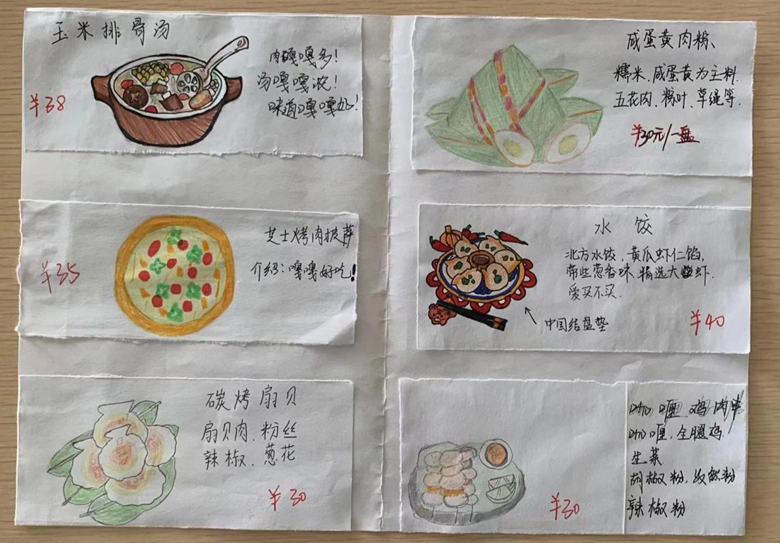 玉米排骨汤
肉嘎嘎多!
汤嘎嘎浓!
味道嘎嘎好!
¥38
芝士烤肉披萨
介绍:嘎嘎好吃!
¥35
碳烤扇贝
扇贝肉、粉丝
辣椒、葱花
¥30
咸蛋黄肉粽、
糯米、咸蛋黄为主料
五花肉、粽叶、草绳等.
¥30元/一盘
水饺
北方水饺,黄瓜虾仁馅,
带些葱香味.精选大虾.
爱买不买.
中国结盘垫
¥40
咖喱鸡肉串
咖喱,全腿鸡
生菜
胡椒粉,孜然粉
辣椒粉
¥30